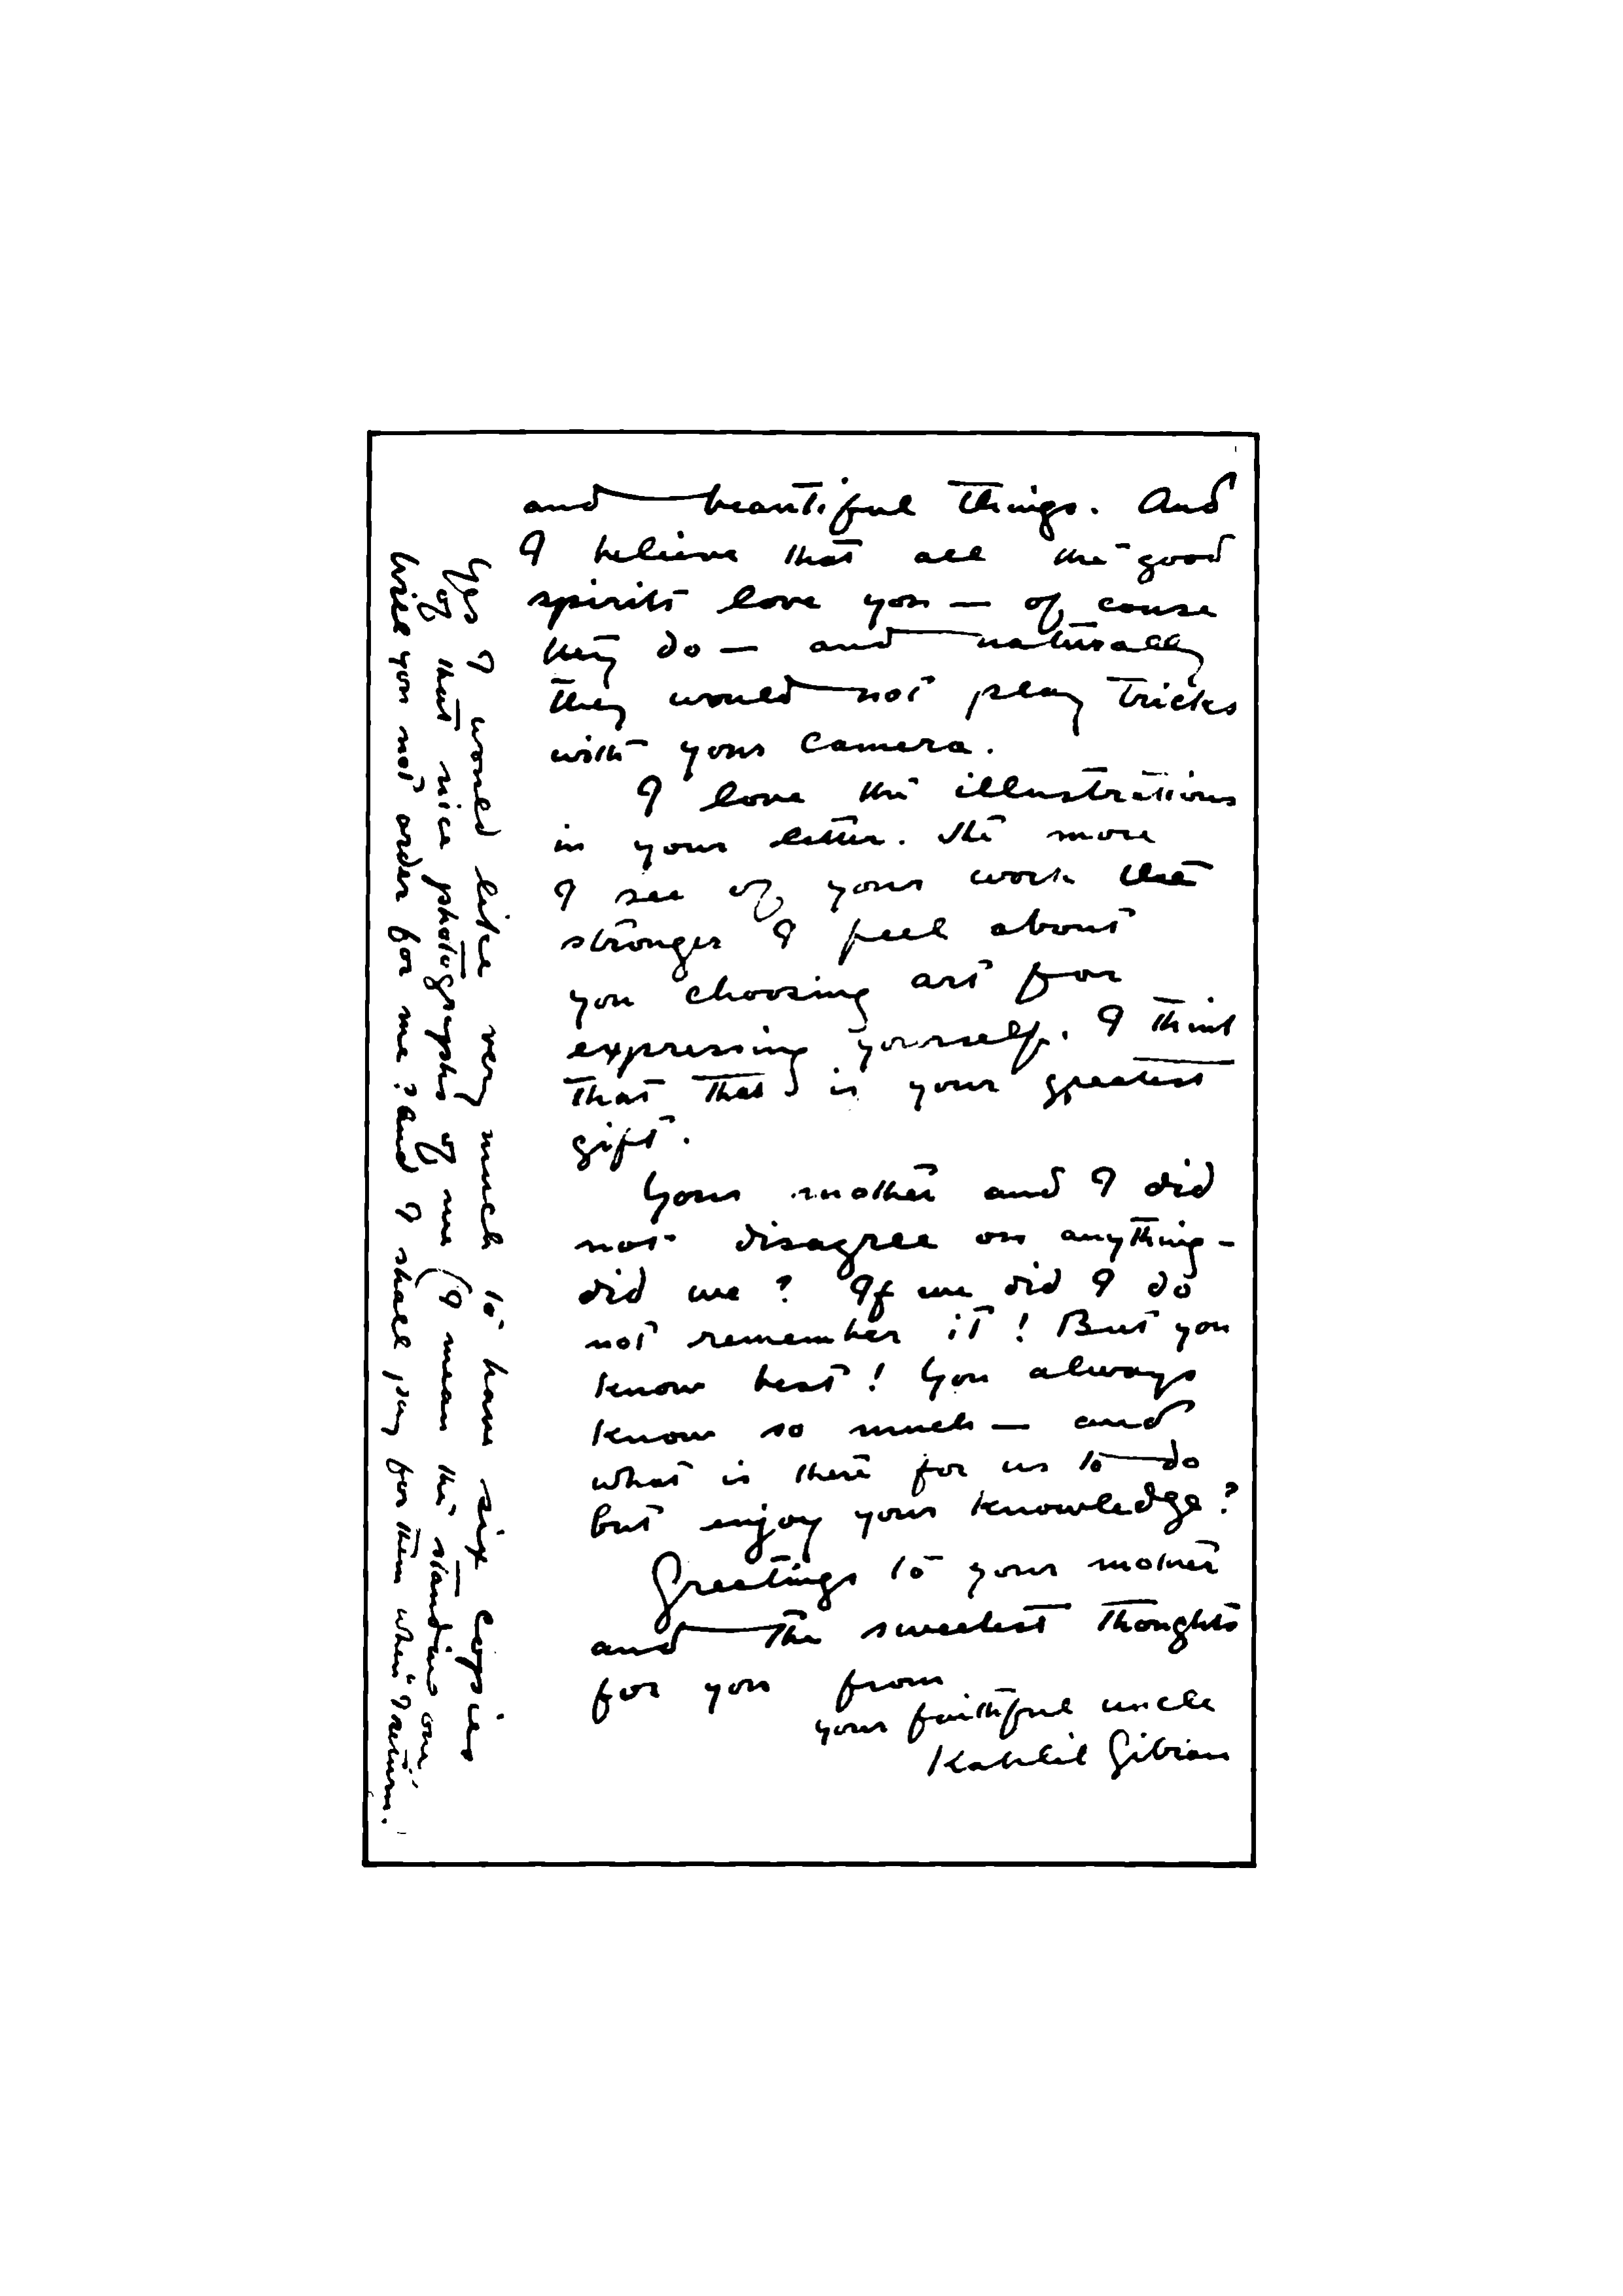 and beautiful things. And
I believe that all the good
spirits love you — of couse
they do — and naturally
they would not play tricks
with your camera.
I love the illustrations
in your letter. The more
I see of your work the
stronger I feel about
you choosing art for
expressing yourself. I think
that that is your greatest
gift.
Your mother and I did
not disagree on anything -
did we? If we did I do
not remember it! But you
know best! You always
know so much — and
what is there for us to do
but enjoy your knowledge?
Greetings to your mother
and the sweetest thoughts
for you from
your faithful uncle
Kahlil Gibran
Yes I would like very much to have six copies
of that nice photographs of me (I mean the standing one
Will you not order for me? and I shall pay for them when I return.